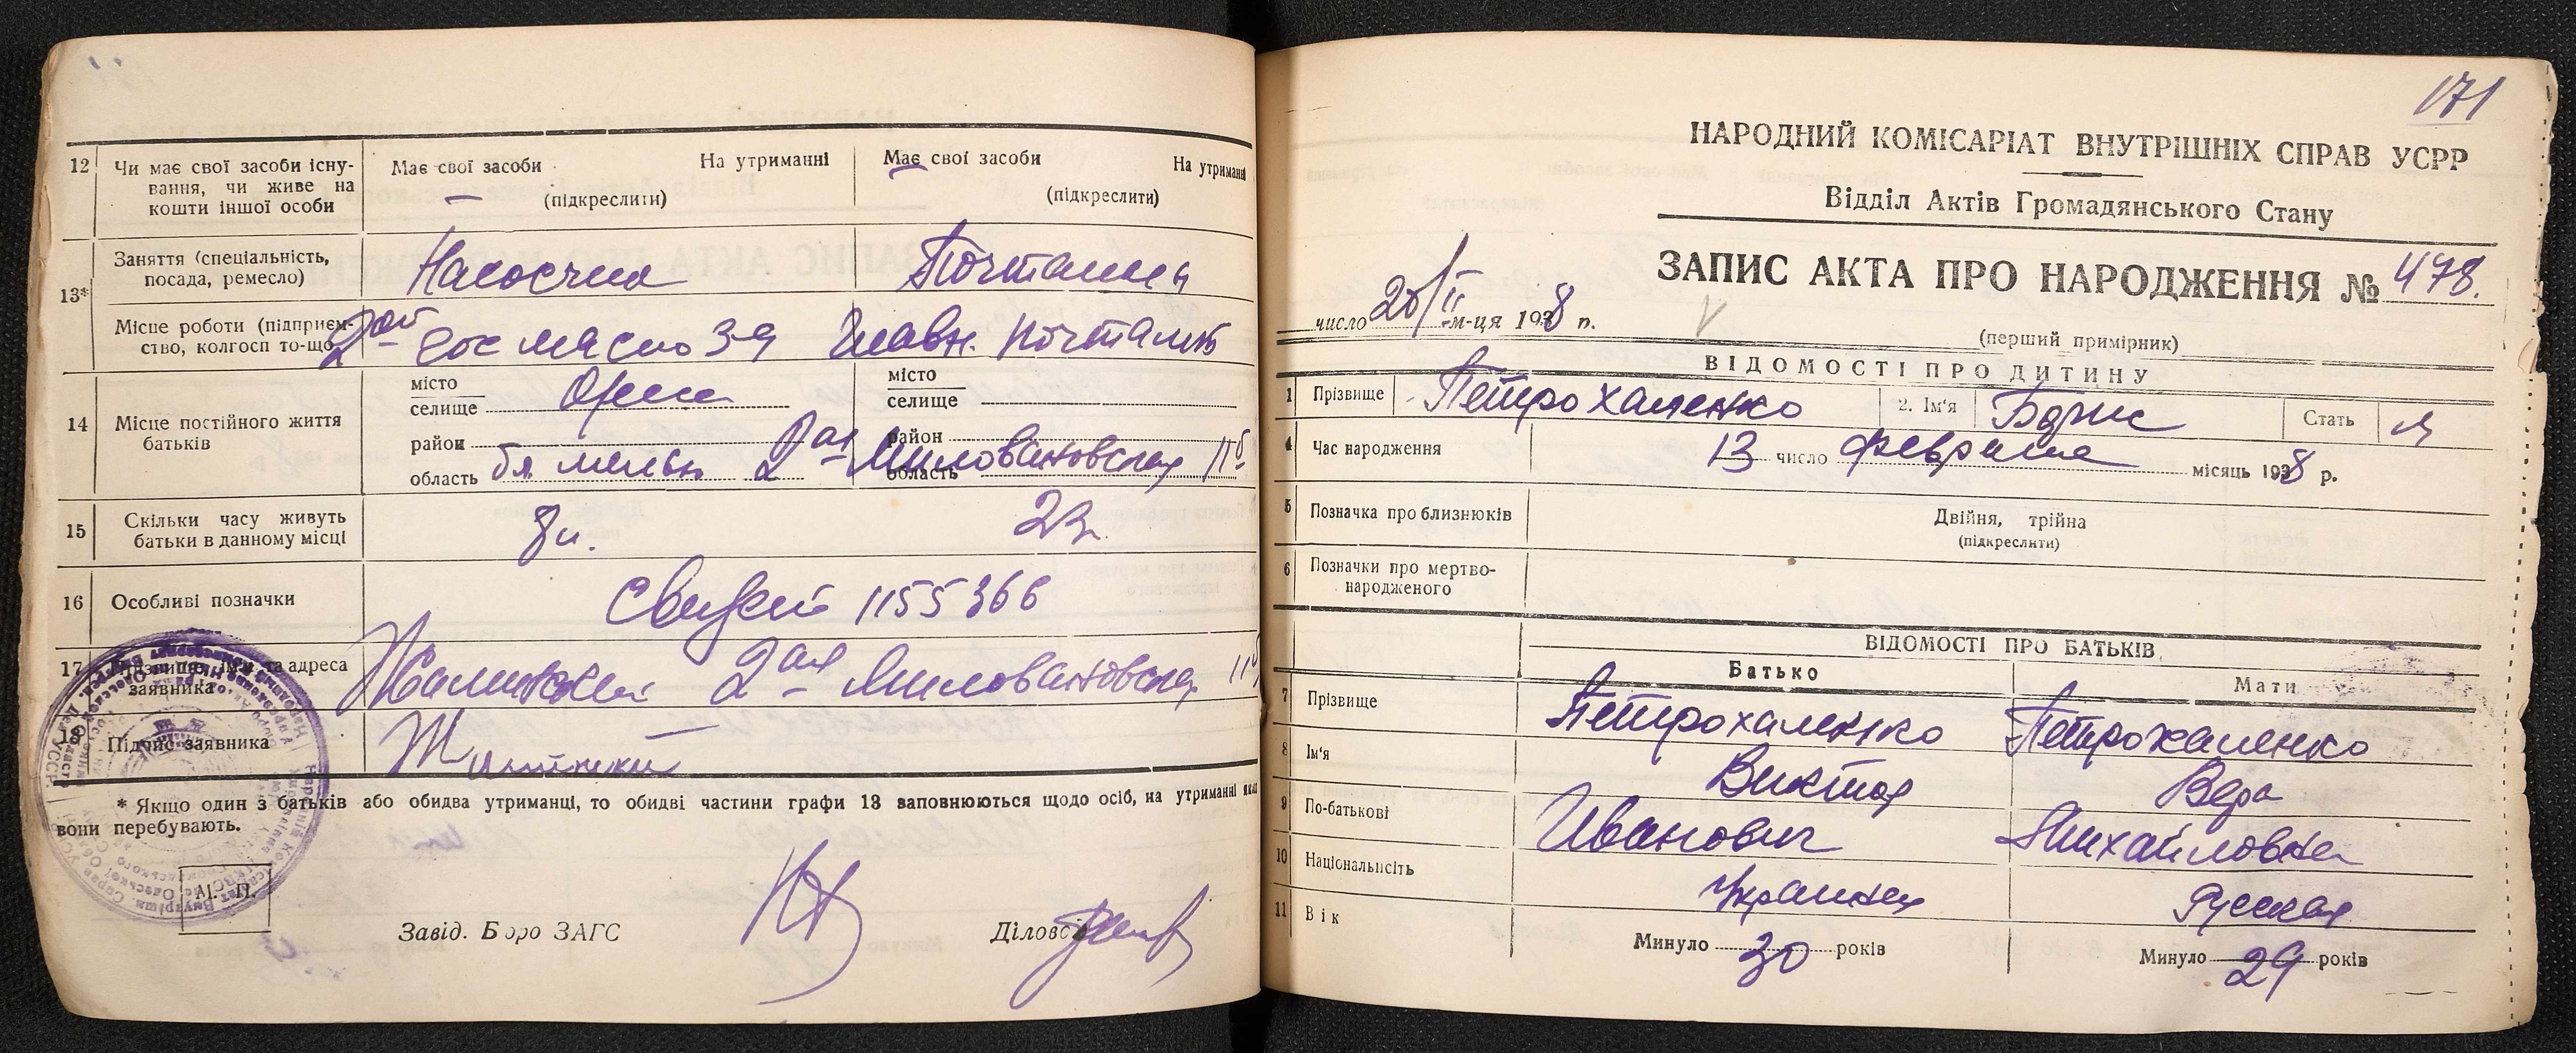 12 Чи має свої засоби існу-
вання, чи живе на
кошти іншої особи
Має свої засоби На утриманні
(підкреслити)
Має свої засоби На утриманні
(підкреслити)
13*
Заняття (спеціальність,
посада, ремесло)
Почтальон
Місце роботи (підприєм-
ство, колгосп то-що)
2ой гос масло з-д Главн. почтамт
14 Місце постійного життя
батьків
місто
селище Одесса
район
область
місто
селище
район
область
2ая Миловановская 11б
15 Скільки часу живуть
батьки в данному місці
16 Особливі позначки
1155366
17 Прізвище, ім'я та адреса
заявника
2ая Миловановская 11б
18 Підпис заявника
* Якщо один з батьків або обидва утриманці, то обидві частини графи 13 заповнюються щодо осіб, на утриманні яких
вони перебувають.
М. П.
Завід. Бюро ЗАГС
Діловод
171
НАРОДНИЙ КОМІСАРІАТ ВНУТРІШНІХ СПРАВ УСРР
Відділ Актів Громадянського Стану
ЗАПИС АКТА ПРО НАРОДЖЕННЯ № 478.
число 20/II м-ця 1938 п.
(перший примірник)
ВІДОМОСТІ ПРО ДИТИНУ
1 Прізвище Петрохаленко 2. Ім'я Борис Стать М
4 Час народження 13 число февраля місяць 1938 р.
5 Позначка про близнюків Двійня, трійня
(підкреслити)
6 Позначки про мертво-
народженого
ВІДОМОСТІ ПРО БАТЬКІВ
Батько Мати
7 Прізвище Петрохаленко Петрохаленко
8 Ім'я Виктор Вера
9 По-батькові Иванович Михайловна
10 Національність Украинец Русская
11 Вік Минуло 30 років Минуло 29 років